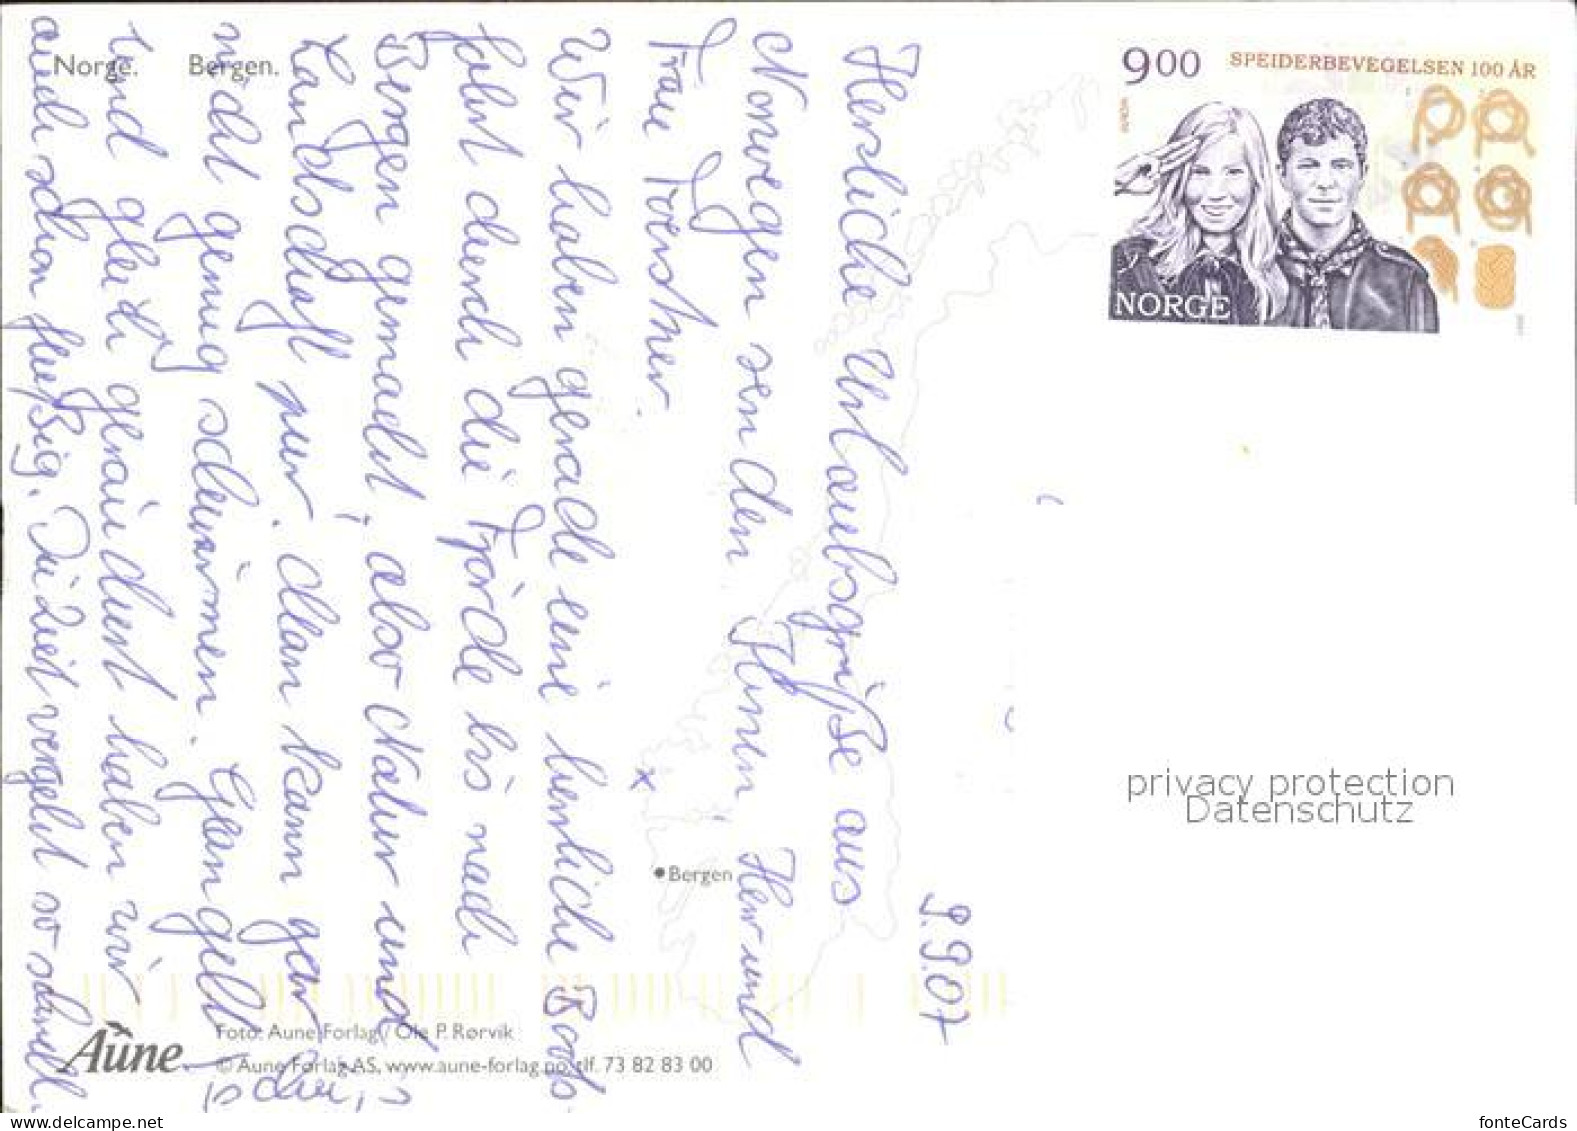 Norge. Bergen.
9.9.07
Herzliche Urlaubsgrüße aus
Norwegen senden Ihnen Herr und
Frau Foerster.
Wir haben gerade eine herrliche Boots
fahrt durch die Fjorde bis nach
Bergen gemacht, also Natur und
Landschaft pur. Man kann gar
nicht genug schwärmen.
und gleich geräuchert haben wir
auch schon fleißig. Die Zeit vergeht so schnell.
900 SPEIDERBEVEGELSEN 100 ÅR
NORGE
privacy protection
Datenschutz
Bergen
Aune
Foto: Aune Forlag / Ole P. Rørvik
© Aune Forlag AS, www.aune-forlag.no, tlf. 73 82 83 00
www.delcampe.net
fonteCards